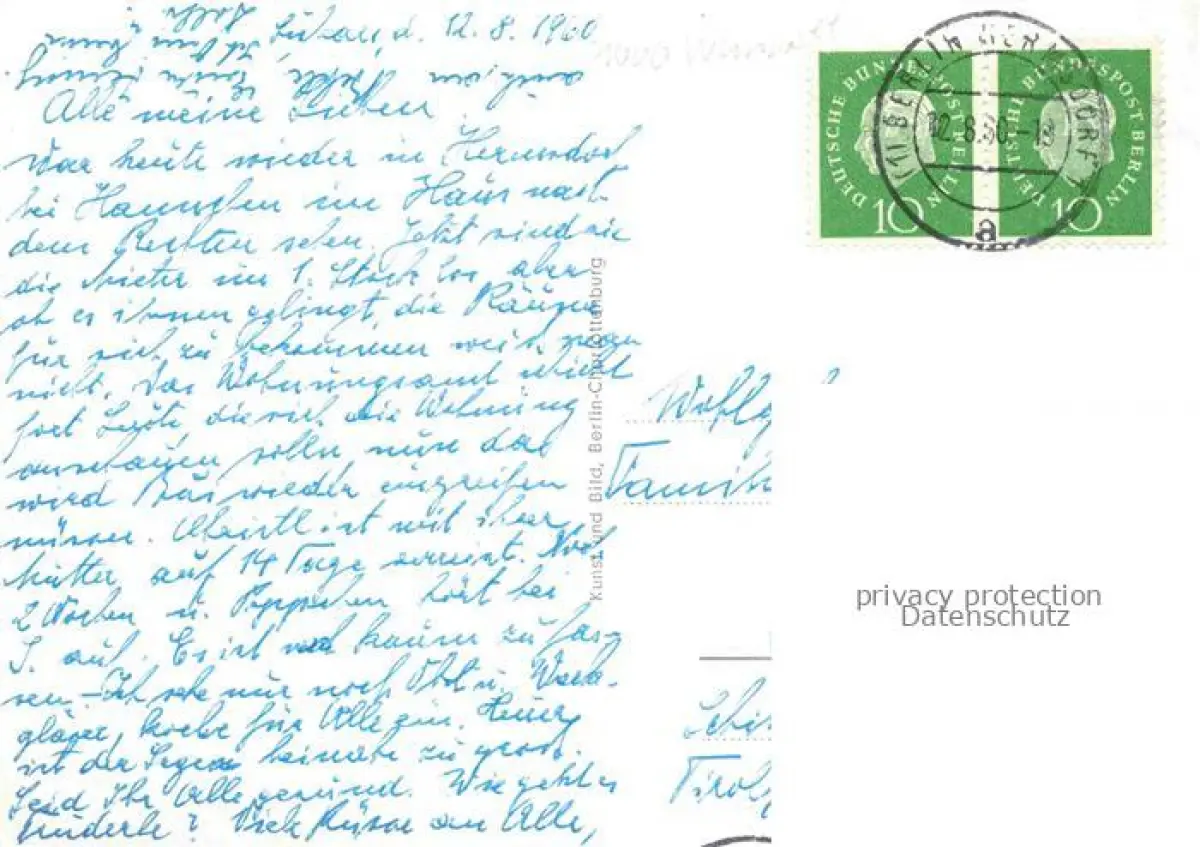 Lübars, d. 12.8.1960
Alle meine Lieben
War heute wieder in Hermsdorf
bei Hannchen im Haus nach
dem Rechten sehen. Jetzt sind sie
die Mieter im 1. Stock los, aber
ob es ihnen gelingt, die Räume
für sich zu bekommen weiß man
nicht. Das Wohnungsamt schickt
fort Leute die sich die Wohnung
anschauen sollen nun das
wird wieder eingreifen
müssen. ist mit ihrer
Mutter auf 14 Tage verreist. Noch
2 Wochen u. hört bei
S. auf. Es ist kaum zu fas-
sen. – Ich sehe nur noch Obst u. Weck-
gläser, koche für Alle ein. Heuer
ist der Segen beinahe zu gross.
Seid Ihr Alle gesund. Wie geht es
? Viele Küsse an Alle,
Kunst und Bild, Berlin-Charlottenburg
DEUTSCHE BUNDESPOST BERLIN
10
DEUTSCHE BUNDESPOST BERLIN
10
(1) BERLIN HERMSDORF
12.8.60.-18
a
Wohlg
Famili
Tirol
privacy protection
Datenschutz